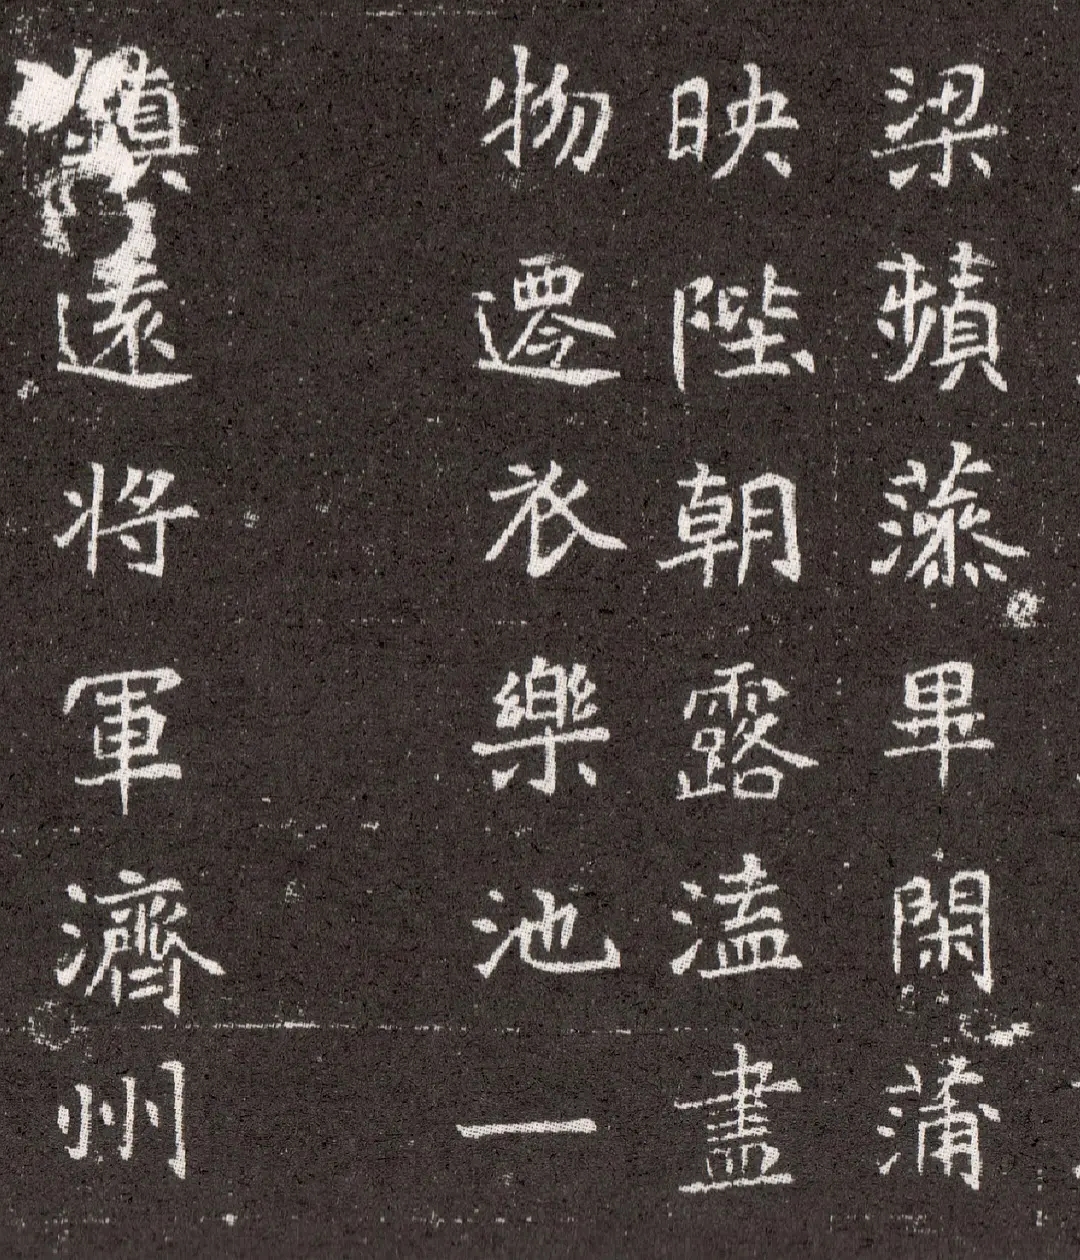 梁蘋藻畢閑蒲
映陛朝露溘盡
物遷衣樂池一
鎮遠将軍濟州